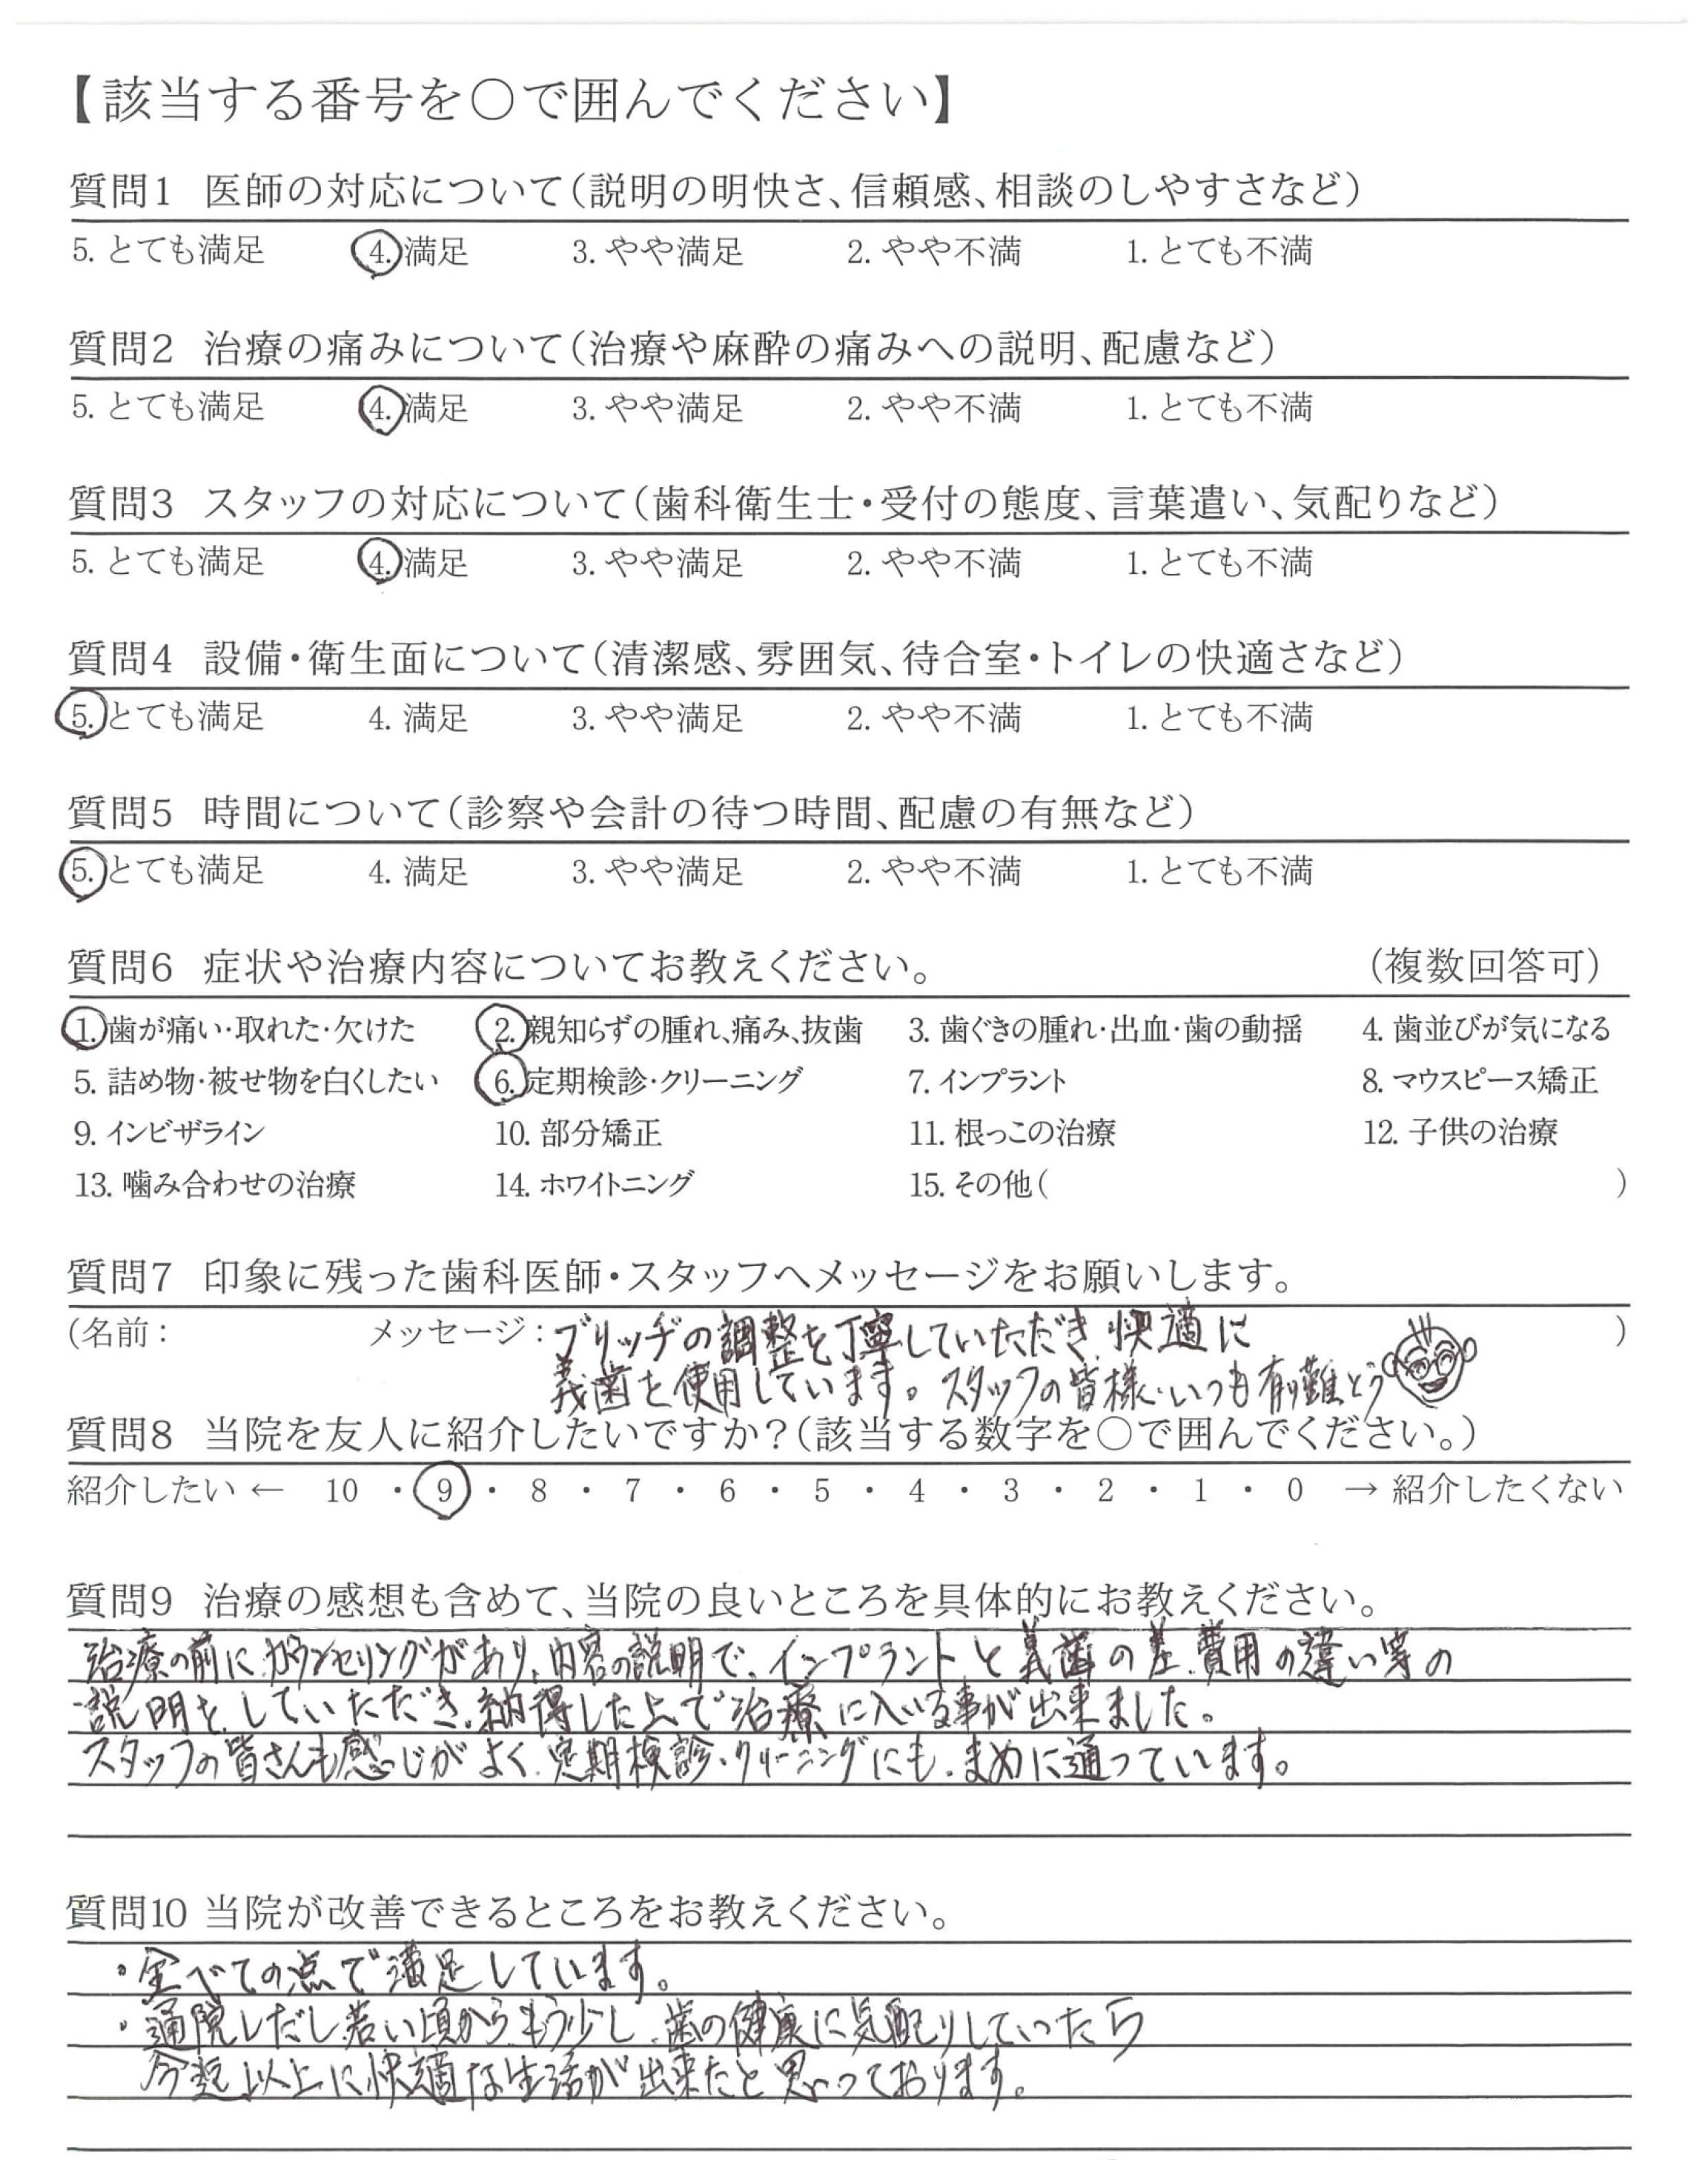 【該当する番号を〇で囲んでください】
質問1 医師の対応について(説明の明快さ、信頼感、相談のしやすさなど)
5. とても満足 4. 満足 3. やや満足 2. やや不満 1. とても不満
質問2 治療の痛みについて(治療や麻酔の痛みへの説明、配慮など)
5. とても満足 4. 満足 3. やや満足 2. やや不満 1. とても不満
質問3 スタッフの対応について(歯科衛生士・受付の態度、言葉遣い、気配りなど)
5. とても満足 4. 満足 3. やや満足 2. やや不満 1. とても不満
質問4 設備・衛生面について(清潔感、雰囲気、待合室・トイレの快適さなど)
5. とても満足 4. 満足 3. やや満足 2. やや不満 1. とても不満
質問5 時間について(診察や会計の待つ時間、配慮の有無など)
5. とても満足 4. 満足 3. やや満足 2. やや不満 1. とても不満
質問6 症状や治療内容についてお教えください。 (複数回答可)
1. 歯が痛い・取れた・欠けた 2. 親知らずの腫れ、痛み、抜歯 3. 歯ぐきの腫れ・出血・歯の動揺 4. 歯並びが気になる
5. 詰め物・被せ物を白くしたい 6. 定期検診・クリーニング 7. インプラント 8. マウスピース矯正
9. インビザライン 10. 部分矯正 11. 根っこの治療 12. 子供の治療
13. 噛み合わせの治療 14. ホワイトニング 15. その他( )
質問7 印象に残った歯科医師・スタッフへメッセージをお願いします。
(名前: メッセージ: ブリッヂの調整を丁寧していただき、快適に )
義歯を使用しています。スタッフの皆様、いつも有難とう
質問8 当院を友人に紹介したいですか?(該当する数字を〇で囲んでください。)
紹介したい ← 10 ・ 9 ・ 8 ・ 7 ・ 6 ・ 5 ・ 4 ・ 3 ・ 2 ・ 1 ・ 0 → 紹介したくない
質問9 治療の感想も含めて、当院の良いところを具体的にお教えください。
治療の前にカウンセリングがあり、内容の説明で、インプラントと義歯の差、費用の違い等の
説明を、していただき、納得した上で治療に入いる事が出来ました。
スタッフの皆さんも感じがよく、定期検診・クリーニングにも、まめに通っています。
質問10 当院が改善できるところをお教えください。
・全べての点で満足しています。
・通院しだし若い頃からもう少し、歯の健康に気配りしていったら
今迄以上に快適な生活が出来たと思っております。